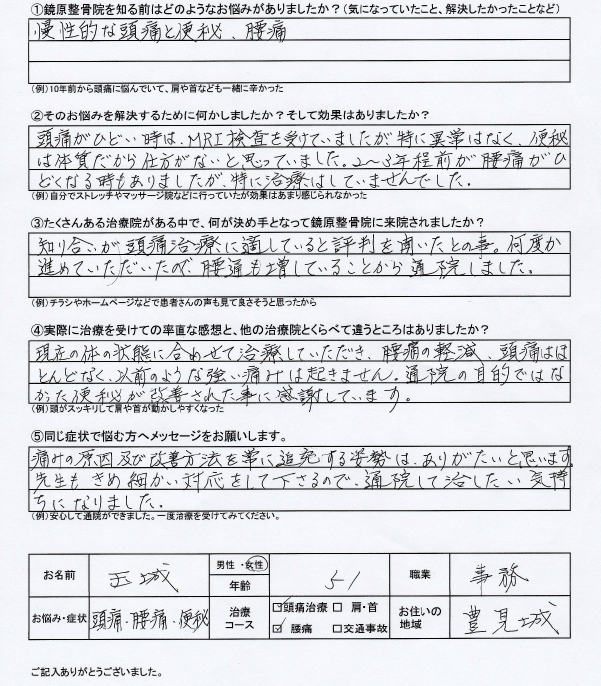 ①鏡原整骨院を知る前はどのようなお悩みがありましたか？(気になっていたこと、解決したかったことなど)
慢性的な頭痛と便秘、腰痛
(例)10年前から頭痛に悩んでいて、肩や首なども一緒に辛かった
②そのお悩みを解決するために何かしましたか？そして効果はありましたか？
頭痛がひどい時は、MRI検査を受けていましたが特に異常はなく、便秘
は体質だから仕方がないと思っていました。2～3年程前が腰痛がひ
どくなる時もありましたが、特に治療はしていませんでした。
(例)自分でストレッチやマッサージ院などに行っていたが効果はあまり感じられなかった
③たくさんある治療院がある中で、何が決め手となって鏡原整骨院に来院されましたか？
知り合いが頭痛治療に適していると評判を聞いたとの事。何度か
進めていただいたので、腰痛も増していることから通院しました。
(例)チラシやホームページなどで患者さんの声も見て良さそうと思ったから
④実際に治療を受けての率直な感想と、他の治療院とくらべて違うところはありましたか？
現在の体の状態に合わせて治療していただき、腰痛の軽減、頭痛はほ
とんどなく、以前のような強い痛みは起きません。通院の目的ではな
かった便秘が改善された事に感謝しています。
(例)頭がスッキリして肩や首が動かしやすくなった
⑤同じ症状で悩む方へメッセージをお願いします。
痛みの原因及び改善方法を常に追究する姿勢は、ありがたいと思います。
先生もきめ細かい対応をして下さるので、通院して治したい気持
ちになりました。
(例)安心して通院ができました。一度治療を受けてみてください。
お名前 玉城 男性・女性 年齢 51 職業 事務
お悩み・症状 頭痛・腰痛・便秘 治療コース ☑頭痛治療 □肩・首 ☑腰痛 □交通事故 お住いの地域 豊見城
ご記入ありがとうございました。